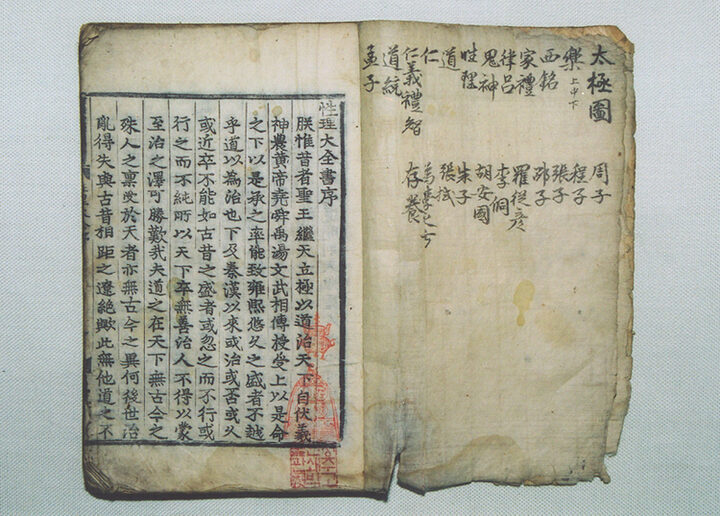 太極圖
樂 上中下
西銘
家禮
律呂
鬼神
性理
道
仁
仁義禮智
道統
孟子
周子
程子
張子
邵子
羅從彦
李侗
胡安國
朱子
張栻
存養
性理大全書序
朕惟昔者聖王繼天立極以道治天下自伏羲
神農黃帝堯舜禹湯文武相傳授受上以是命
之下以是承之率能致雍熙悠久之盛者不越
乎道以為治也下及秦漢以來或治或否或久
或近卒不能如古昔之盛者或忽之而不行或
行之而不純所以天下卒無善治人不得以蒙
至治之澤可勝歎哉夫道之在天下無古今之
殊人之稟受於天者亦無古今之異何後世治
亂得失與古昔相距之遼絶歟此無他道之不